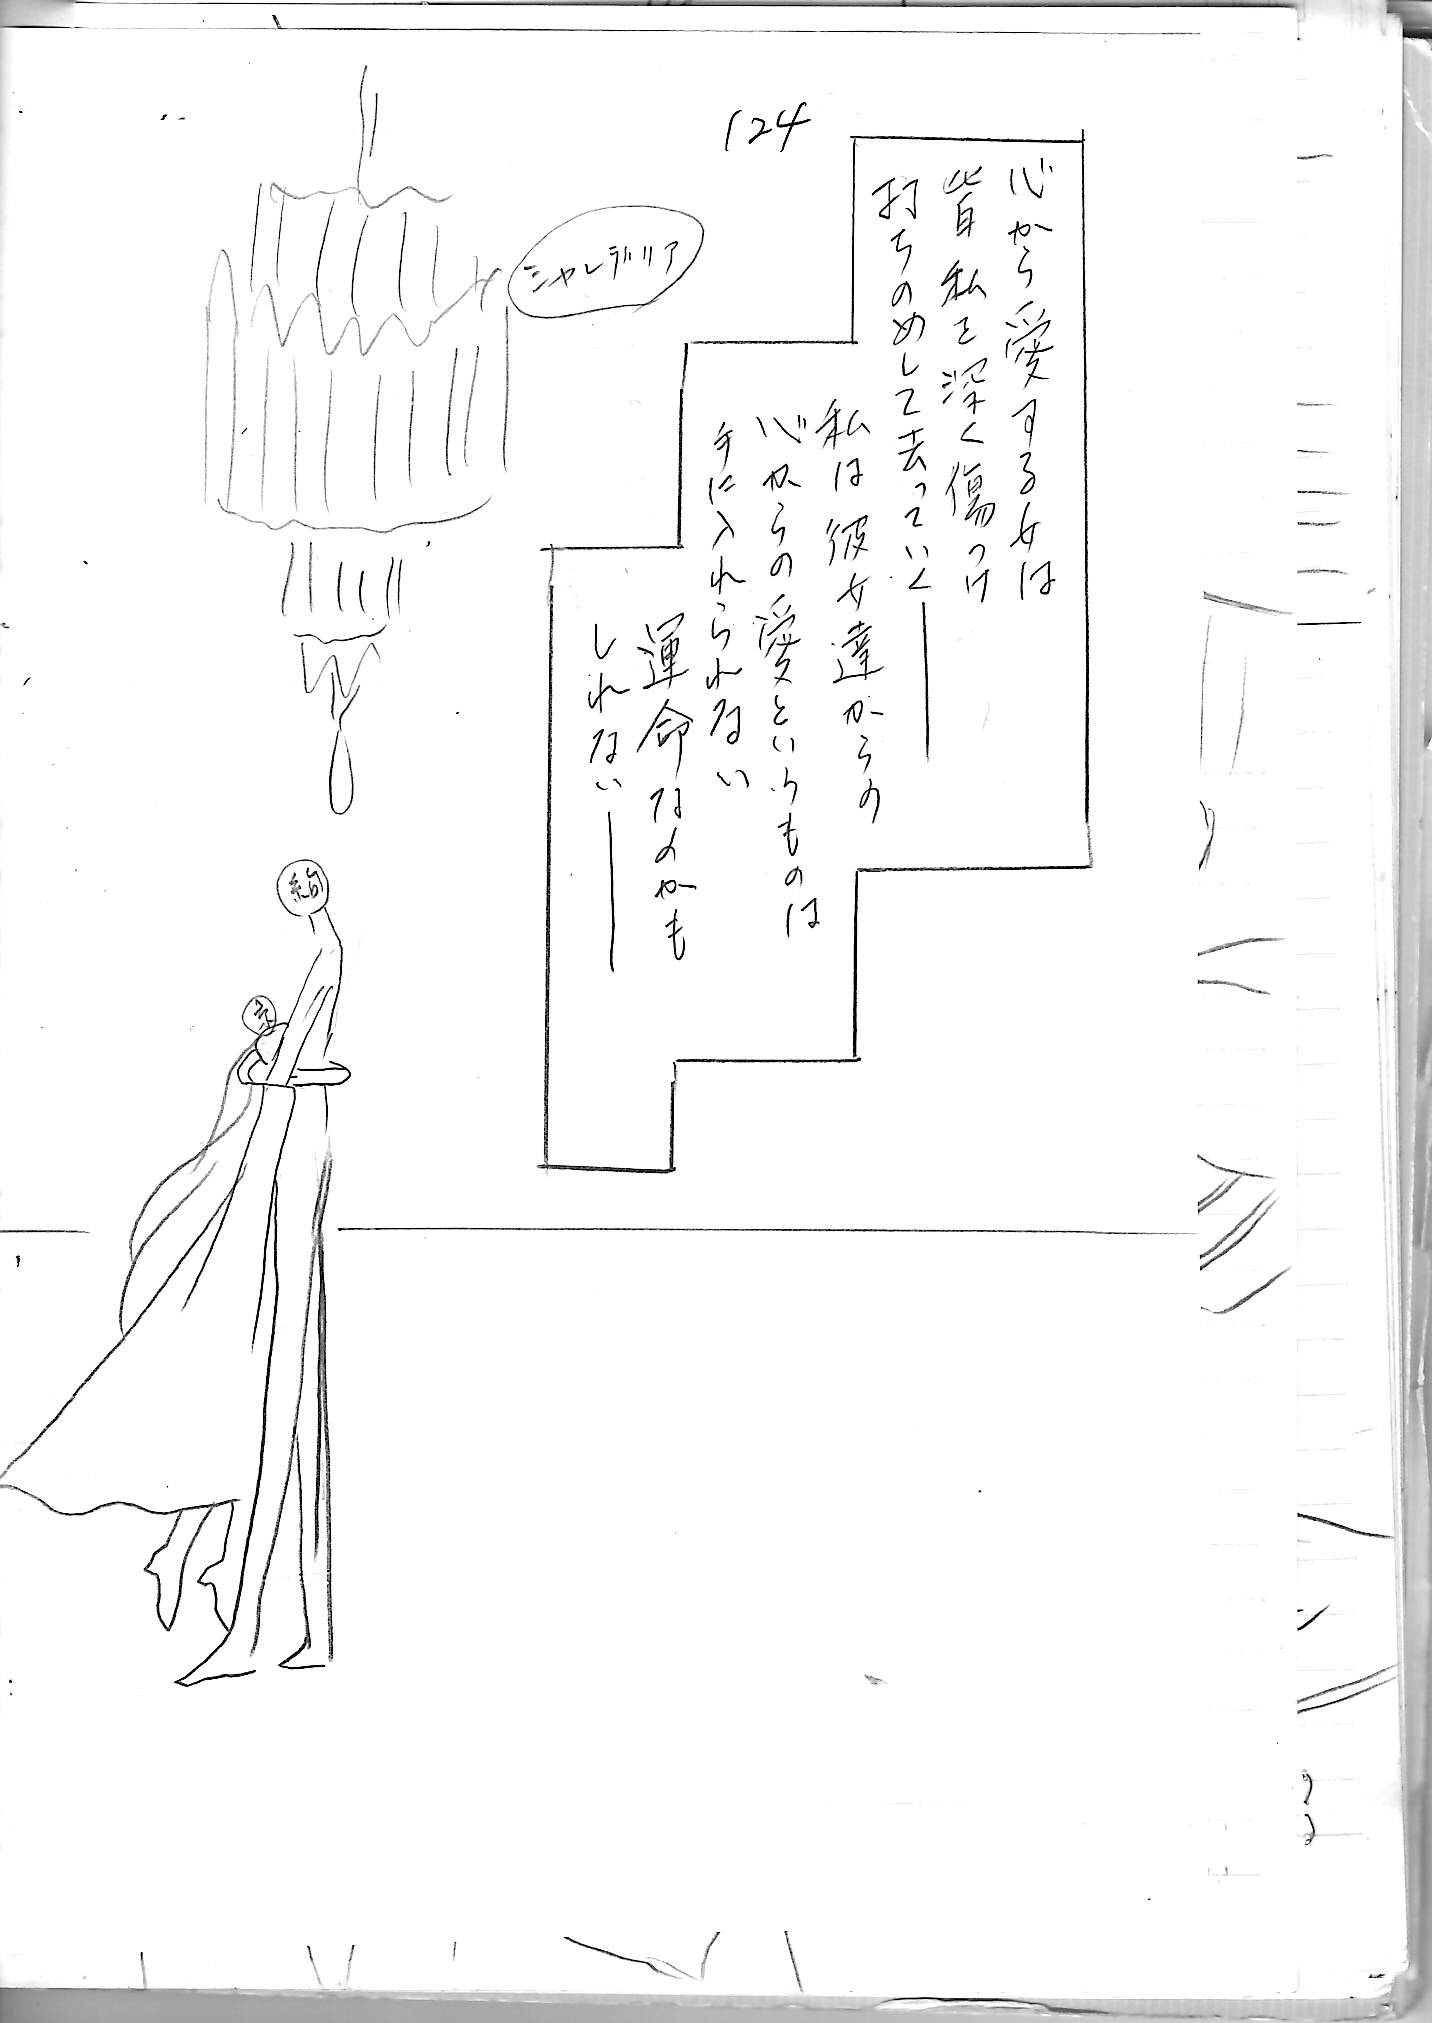 124
心から愛する女は
皆私を深く傷つけ
打ちのめして去っていく――
私は彼女達からの
心からの愛というものは
手に入れられない
運命なのかも
しれない――
シャンデリア
絢
京